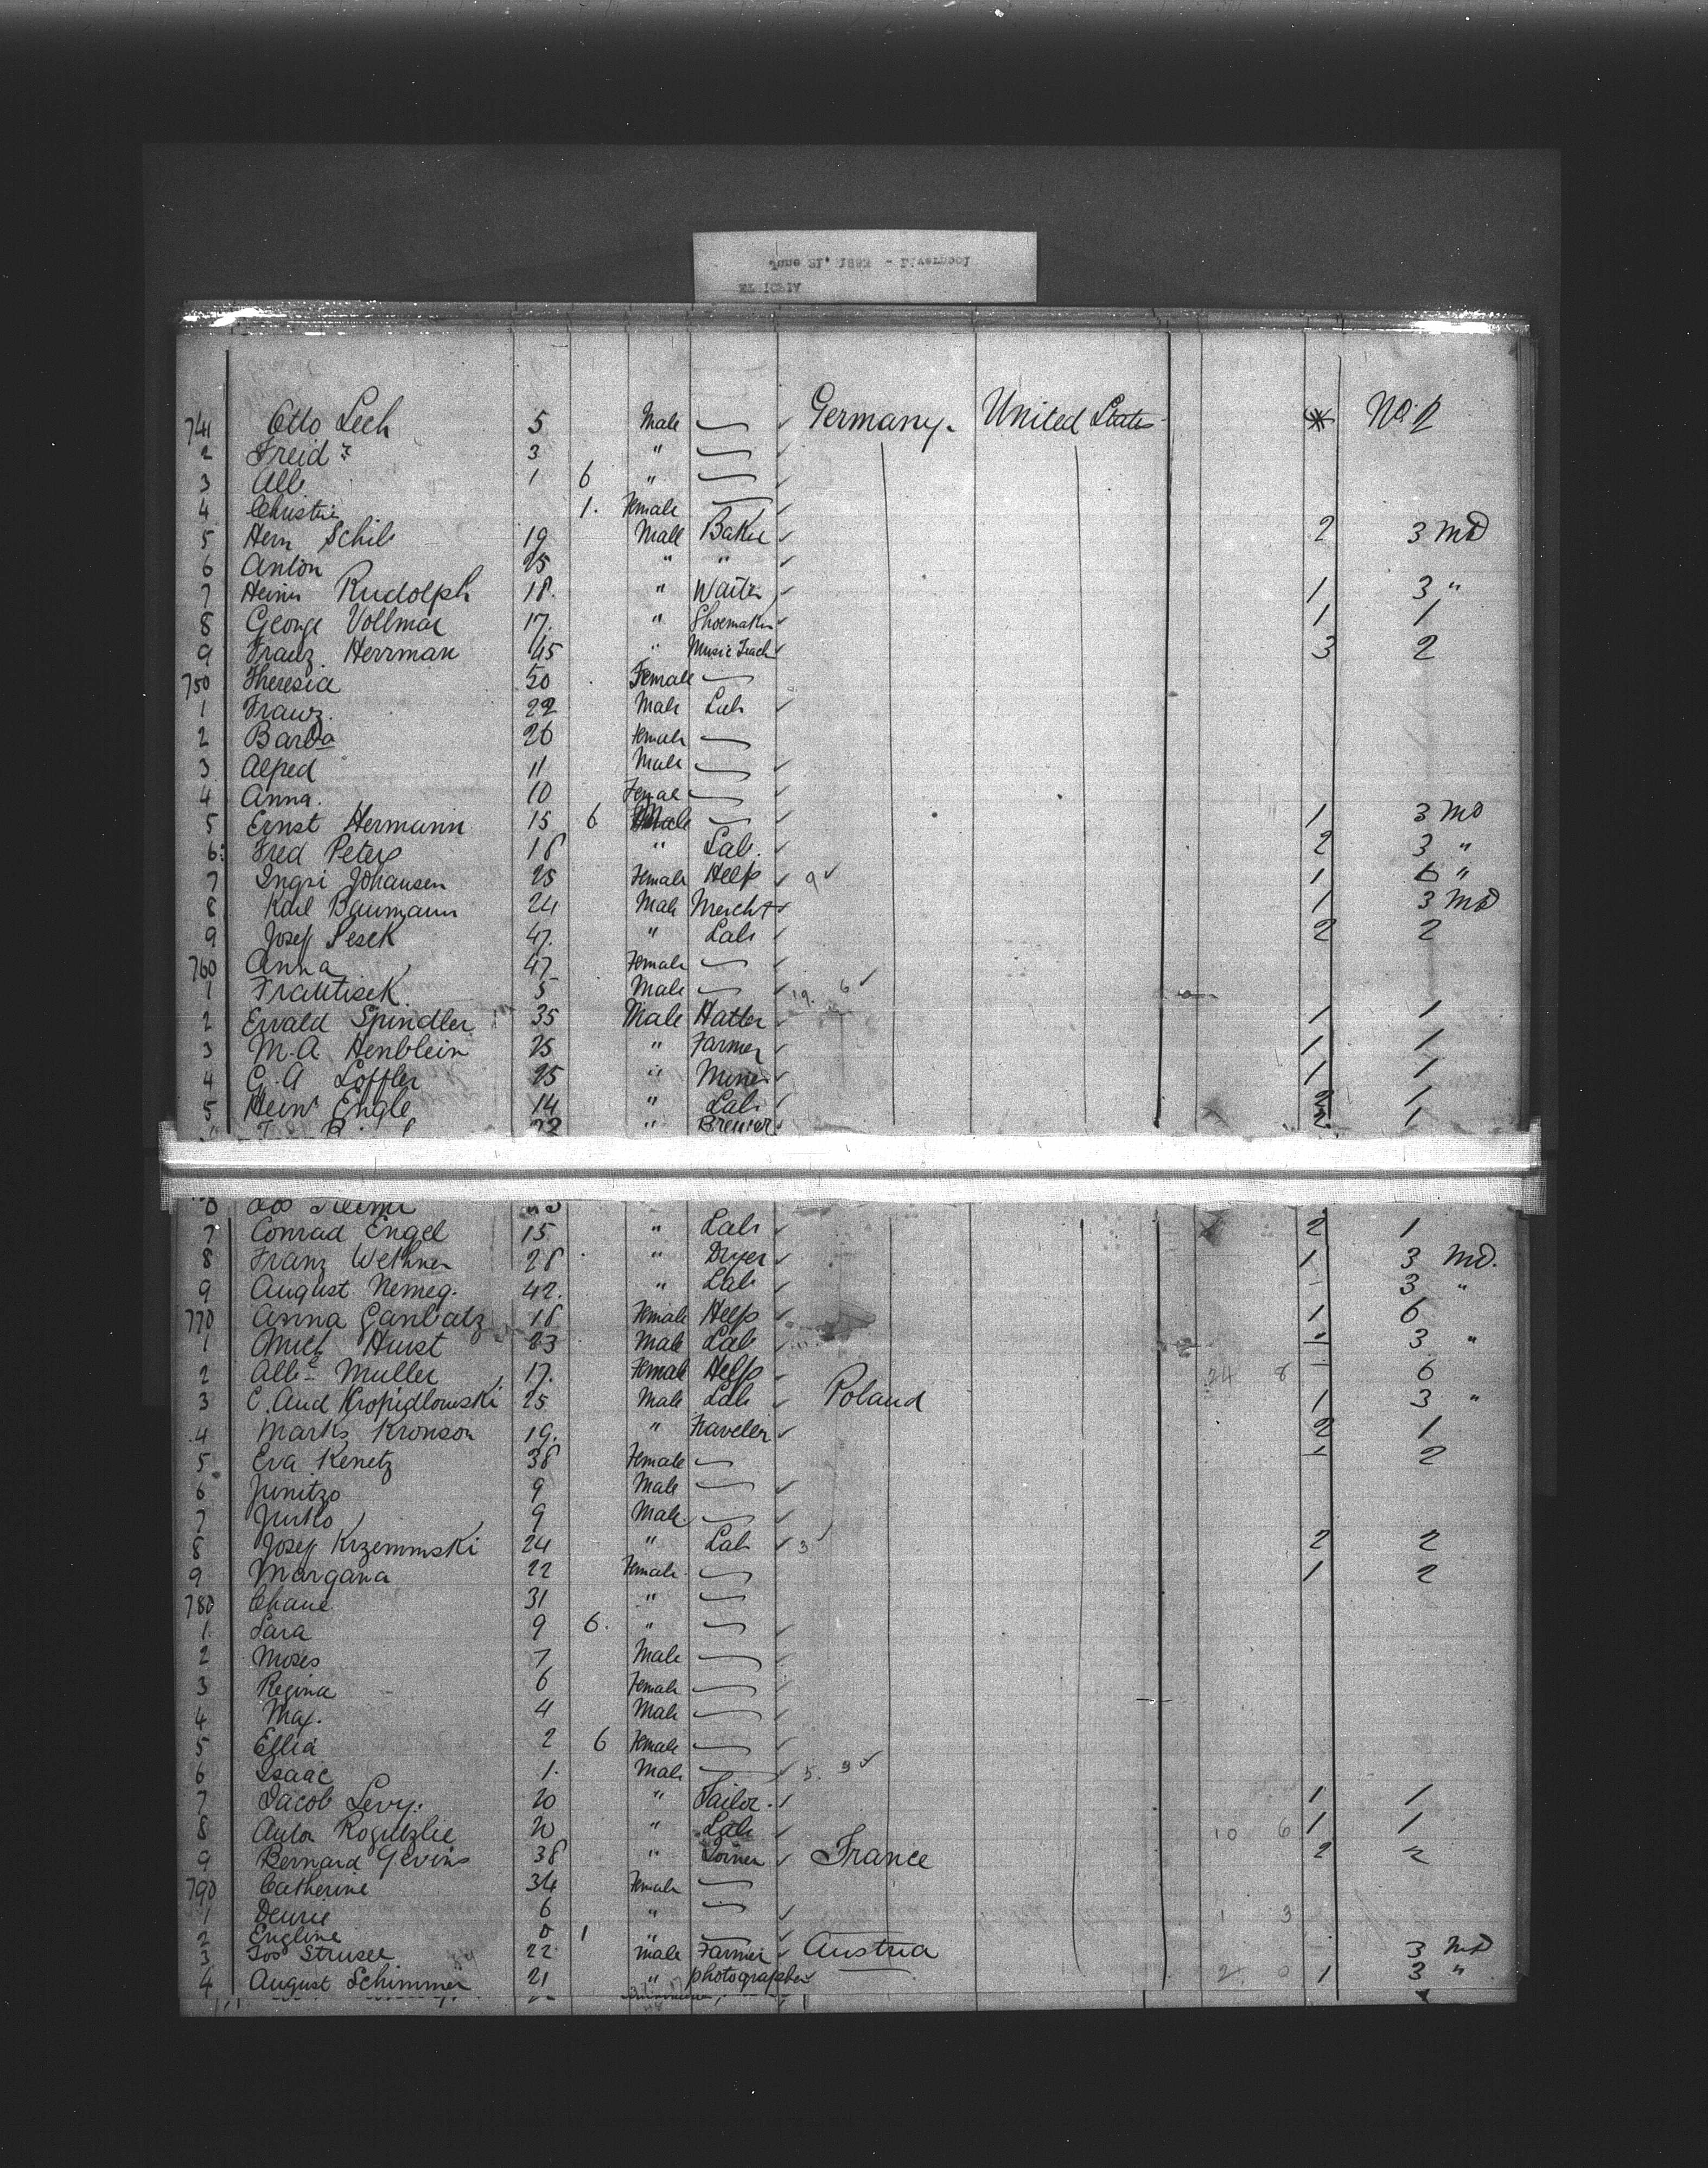 741 Otto Lech 5 Male Germany. United States No. 2
2 Freid 3 "
3 Alb 1 6 "
4 Christie 1. Female
5 Hern Schib 19 Male Baker 2 3 MD
6 Anton 25 " "
7 Heinr Rudolph 18. " Waiter 1 3 "
8 George Vollmar 17. " Shoemaker 1 1
9 Franz Herrman 45 " Music Teach 3 2
750 Theresia 50 Female
1 Franz. 22 Male Lab
2 Barba 26 Female
3 Alfred 11 Male
4 Anna. 10 Female
5 Ernst Hermann 15 6 Male 1 3 MD
6 Fred Peters 18 " Lab. 2 3 "
7 Ingri Johansen 25 Female Help 9 1 6 "
8 Karl Baumann 24 Male Mercht 1 3 MD
9 Josef Sesek 47. " Lab 2 2
760 Anna 47 Female
1 Frantisek. 5 Male 19. 6
2 Ewald Spindler 35 Male Hatter 1 1
3 M. A Henblein 25 " Farmer 1 1
4 G. A Loffler 25 " Miner 1 1
5 Heinr Engle 14 " Lab 2 1
" Brewer 2 1
7 Conrad Engel 15 " Lab 2 1
8 Franz Wethner 28 " Dryer 1 3 MD.
9 August Nemeg. 42. " Lab 3 "
770 Anna Ganbatz 18 Female Help 1 6
1 Mich Hurst 23 Male Lab 3 "
2 Albe Muller 17. Female Help 24 8 6
3 C. Aud Kropidlowski 25 Male Lab Poland 1 3 "
4 Marks Kronson 19. " Traveler 2 1
5 Eva Kenetz 38 Female 1 2
6 Junitzo 9 Male
7 Jurko 9 Male
8 Josef Krzemmski 24 " Lab 3 2 2
9 Margana 22 Female 1 2
780 Chane 31 "
1. Sara 9 6. "
2 Moses 7 Male
3 Regina 6 Female
4 Max. 4 Male
5 Ellia 2 6 Female
6 Isaac 1. Male 5. 3
7 Jacob Levy. 20 " Tailor 1 1
8 Anton 20 " Lab 10 6 1 1
9 Bernard Gevins 38 " Joiner France 2 2
790 Catherine 34 Female
1 Deurie 6 " 1 3
2 Engline 0 1 "
3 Jos Strusee 22 Male Farmer Austria 3 MD
4 August Schimmer 21 " photographer 2 0 1 3 "